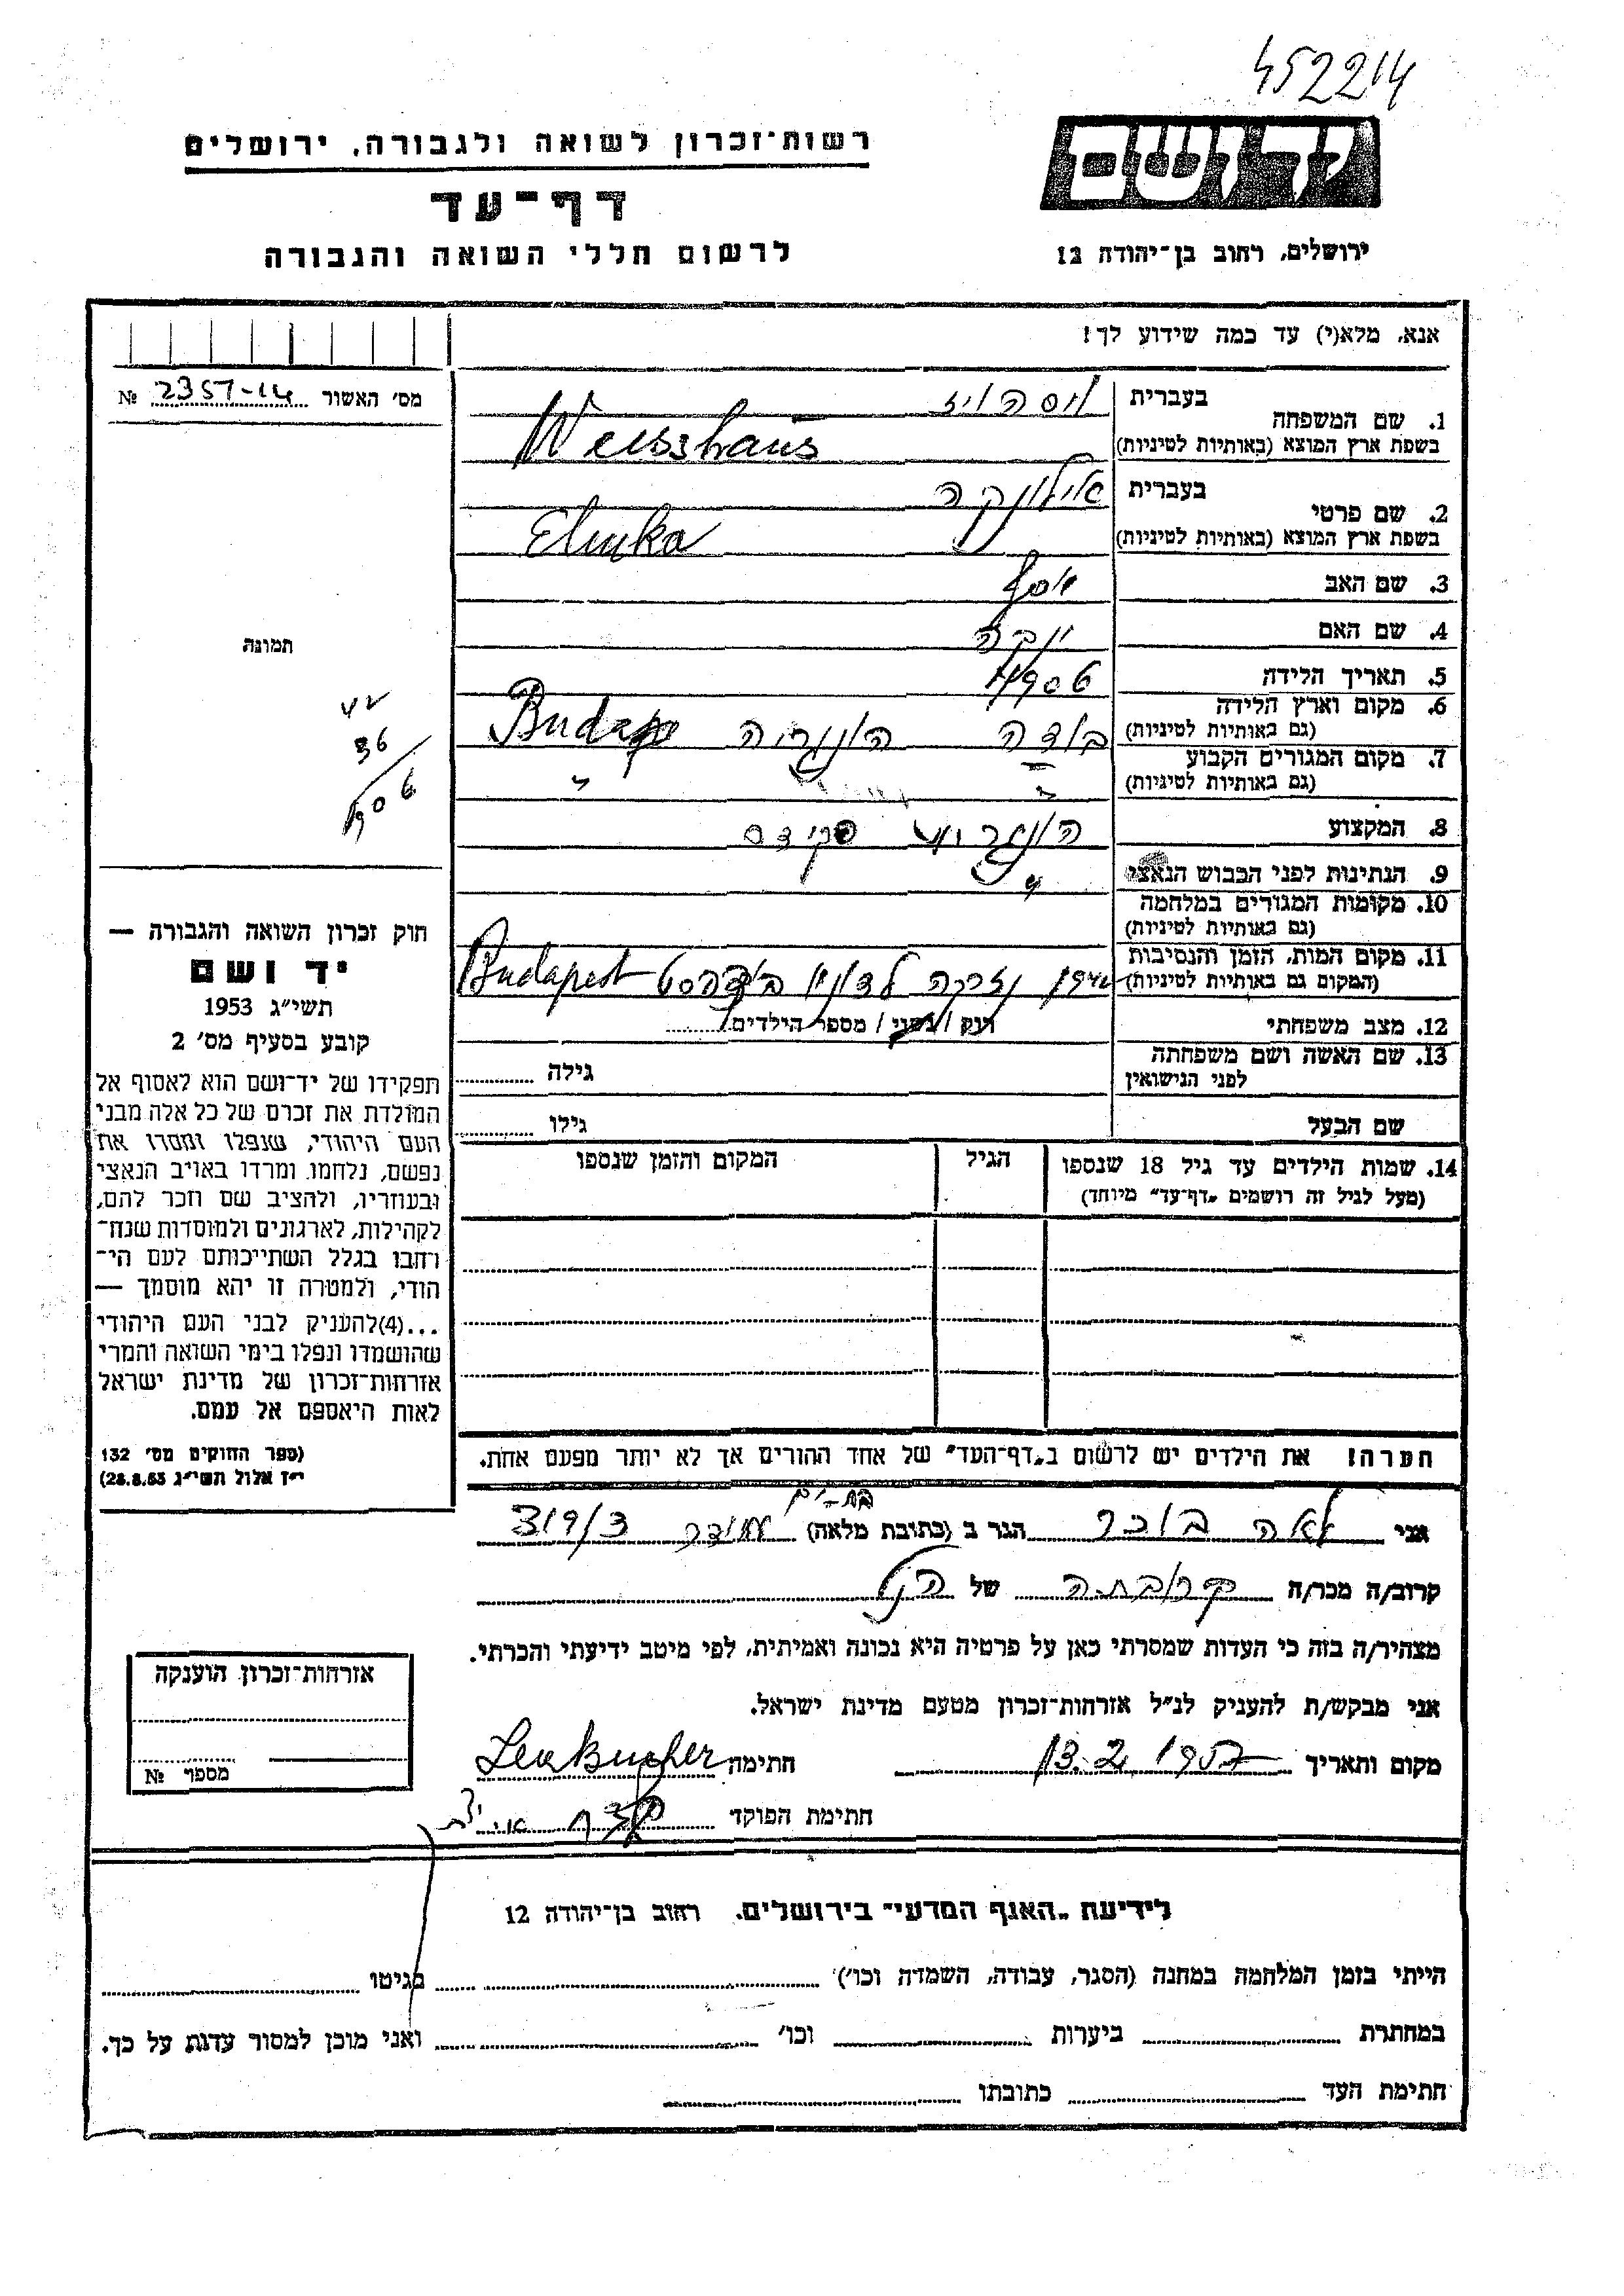 452214
רשות־זכרון לשואה ולגבורה, ירושלים
יד ושם
דף־עד
לרשום חללי השואה והגבורה
ירושלים, רחוב בן־יהודה 12
אנא, מלא(י) עד כמה שידוע לך!
מס' האשור 2357-14 №
1. שם המשפחה
בעברית
בשפת ארץ המוצא (באותיות לטיניות) Weisshaus
2. שם פרטי
בעברית אילונקה
בשפת ארץ המוצא (באותיות לטיניות) Elunka
3. שם האב יוסף
4. שם האם
5. תאריך הלידה 1906
6. מקום וארץ הלידה
(גם באותיות לטיניות) בודה הונגריה
7. מקום המגורים הקבוע
(גם באותיות לטיניות) " "
8. המקצוע
9. הנתינות לפני הכבוש הנאצי
10. מקומות המגורים במלחמה
(גם באותיות לטיניות)
11. מקום המות, הזמן והנסיבות
(המקום גם באותיות לטיניות) נזרקה לדונוי בודהפסט Budapest
12. מצב משפחתי רוק / נשוי / מספר הילדים
13. שם האשה ושם משפחתה
לפני הנישואין גילה
שם הבעל גילו
14. שמות הילדים עד גיל 18 שנספו
(מעל לגיל זה רושמים „דף־עד" מיוחד)
הגיל
המקום והזמן שנספו
הערה! את הילדים יש לרשום ב„דף־העד" של אחד ההורים אך לא יותר מפעם אחת.
תמונה
42
36
906
חוק זכרון השואה והגבורה —
יד ושם
תשי"ג 1953
קובע בסעיף מס' 2
תפקידו של יד־ושם הוא לאסוף אל
המולדת את זכרם של כל אלה מבני
העם היהודי, שנפלו ומסרו את
נפשם, נלחמו ומרדו באויב הנאצי
ובעוזריו, ולהציב שם וזכר להם,
לקהילות, לארגונים ולמוסדות שנח־
רבו בגלל השתייכותם לעם הי־
הודי, ולמטרה זו יהא מוסמך —
...(4)להעניק לבני העם היהודי
שהושמדו ונפלו בימי השואה והמרי
אזרחות־זכרון של מדינת ישראל
לאות היאספם אל עמם.
(ספר החוקים מס' 132
י"ז אלול תשי"ג 28.8.53)
בת-ים
אני לאה בוכר הגר ב (כתובת מלאה) 319/3
קרוב/ה מכר/ה קרובתה של הנ"ל
מצהיר/ה בזה כי העדות שמסרתי כאן על פרטיה היא נכונה ואמיתית, לפי מיטב ידיעתי והכרתי.
אני מבקש/ת להעניק לנ"ל אזרחות־זכרון מטעם מדינת ישראל.
מקום ותאריך 13.2.1957 חתימה Lea Bucher
חתימת הפוקד
אזרחות־זכרון הוענקה
מספר №
לידיעת „האגף המדעי" בירושלים. רחוב בן־יהודה 12
הייתי בזמן המלחמה במחנה (הסגר, עבודה, השמדה וכו') בגיטו
במחתרת ביערות וכו' ואני מוכן למסור עדות על כך.
חתימת העד כתובתו